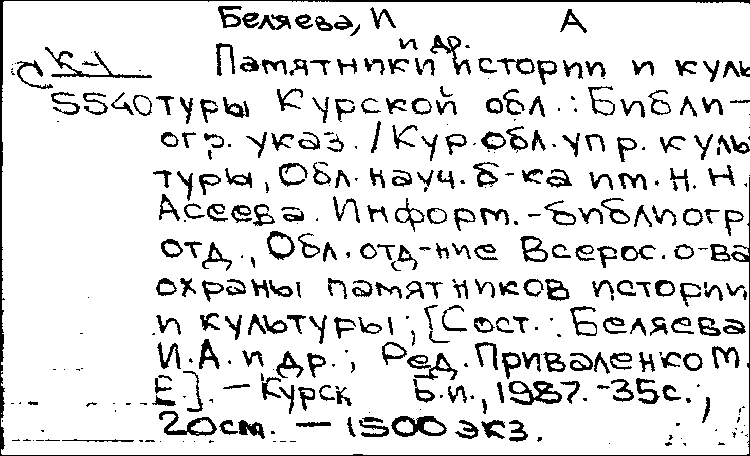 Беляева, И А
и др.
С К-1 Памятники истории и куль
5540 туры Курской обл.: Библи-
огр. указ. / Кур. обл. упр. куль
туры, Обл. науч. б-ка им. Н. Н.
Асеева. Информ.-библиогр.
отд., Обл. отд-ние Всерос. о-ва
охраны памятников истории
и культуры; [Сост.: Беляева
И. А. и др.; Ред. Приваленко М.
Е.]. — Курск Б.и., 1987. - 35с.;
20см. — 1500 экз.